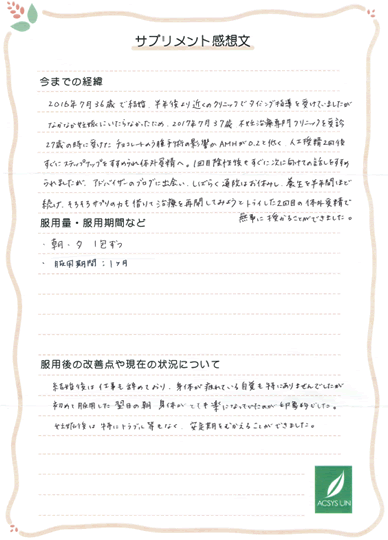 サプリメント感想文
今までの経緯
2016年7月36歳で結婚、半年後より近くのクリニックでタイミング指導を受けていましたが
なかなか妊娠にいたらなかったため、2017年7月37歳 不妊治療専門クリニックを受診
27歳の時に受けたチョコレートのう腫手術の影響かAMHが0.2と低く 人工授精2回後
すぐにステップアップをすすめられ体外受精へ。1回目陰性後もすぐに次に向けての話しをすすめ
られましたが、アドバイザーのブログに出会い、しばらく通院はお休みし、養生を半年間ほど
続け、そろそろサプリの力も借りて治療を再開してみようとトライした2回目の体外受精で
無事に授かることができました。
服用量・服用期間など
・朝・夕 1包ずつ
・服用期間：1ヶ月
服用後の改善点や現在の状況について
結婚後は仕事も辞めており、身体が疲れている自覚も特にありませんでしたが
初めて服用した翌日の朝 身体がとても楽になっていたのが印象的でした。
妊娠後は特にトラブル等もなく、安定期をむかえることができました。
ACSYS UN